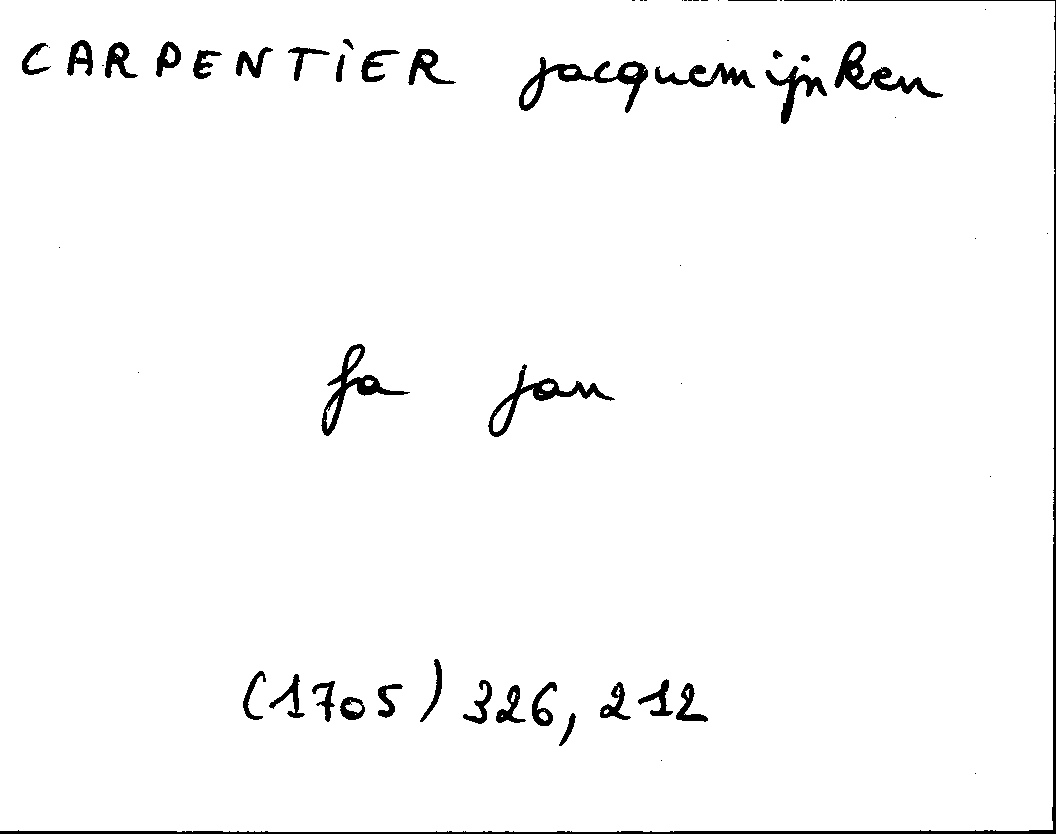 CARPENTIER jacquemijnken
fa jan
(1705) 326, 212